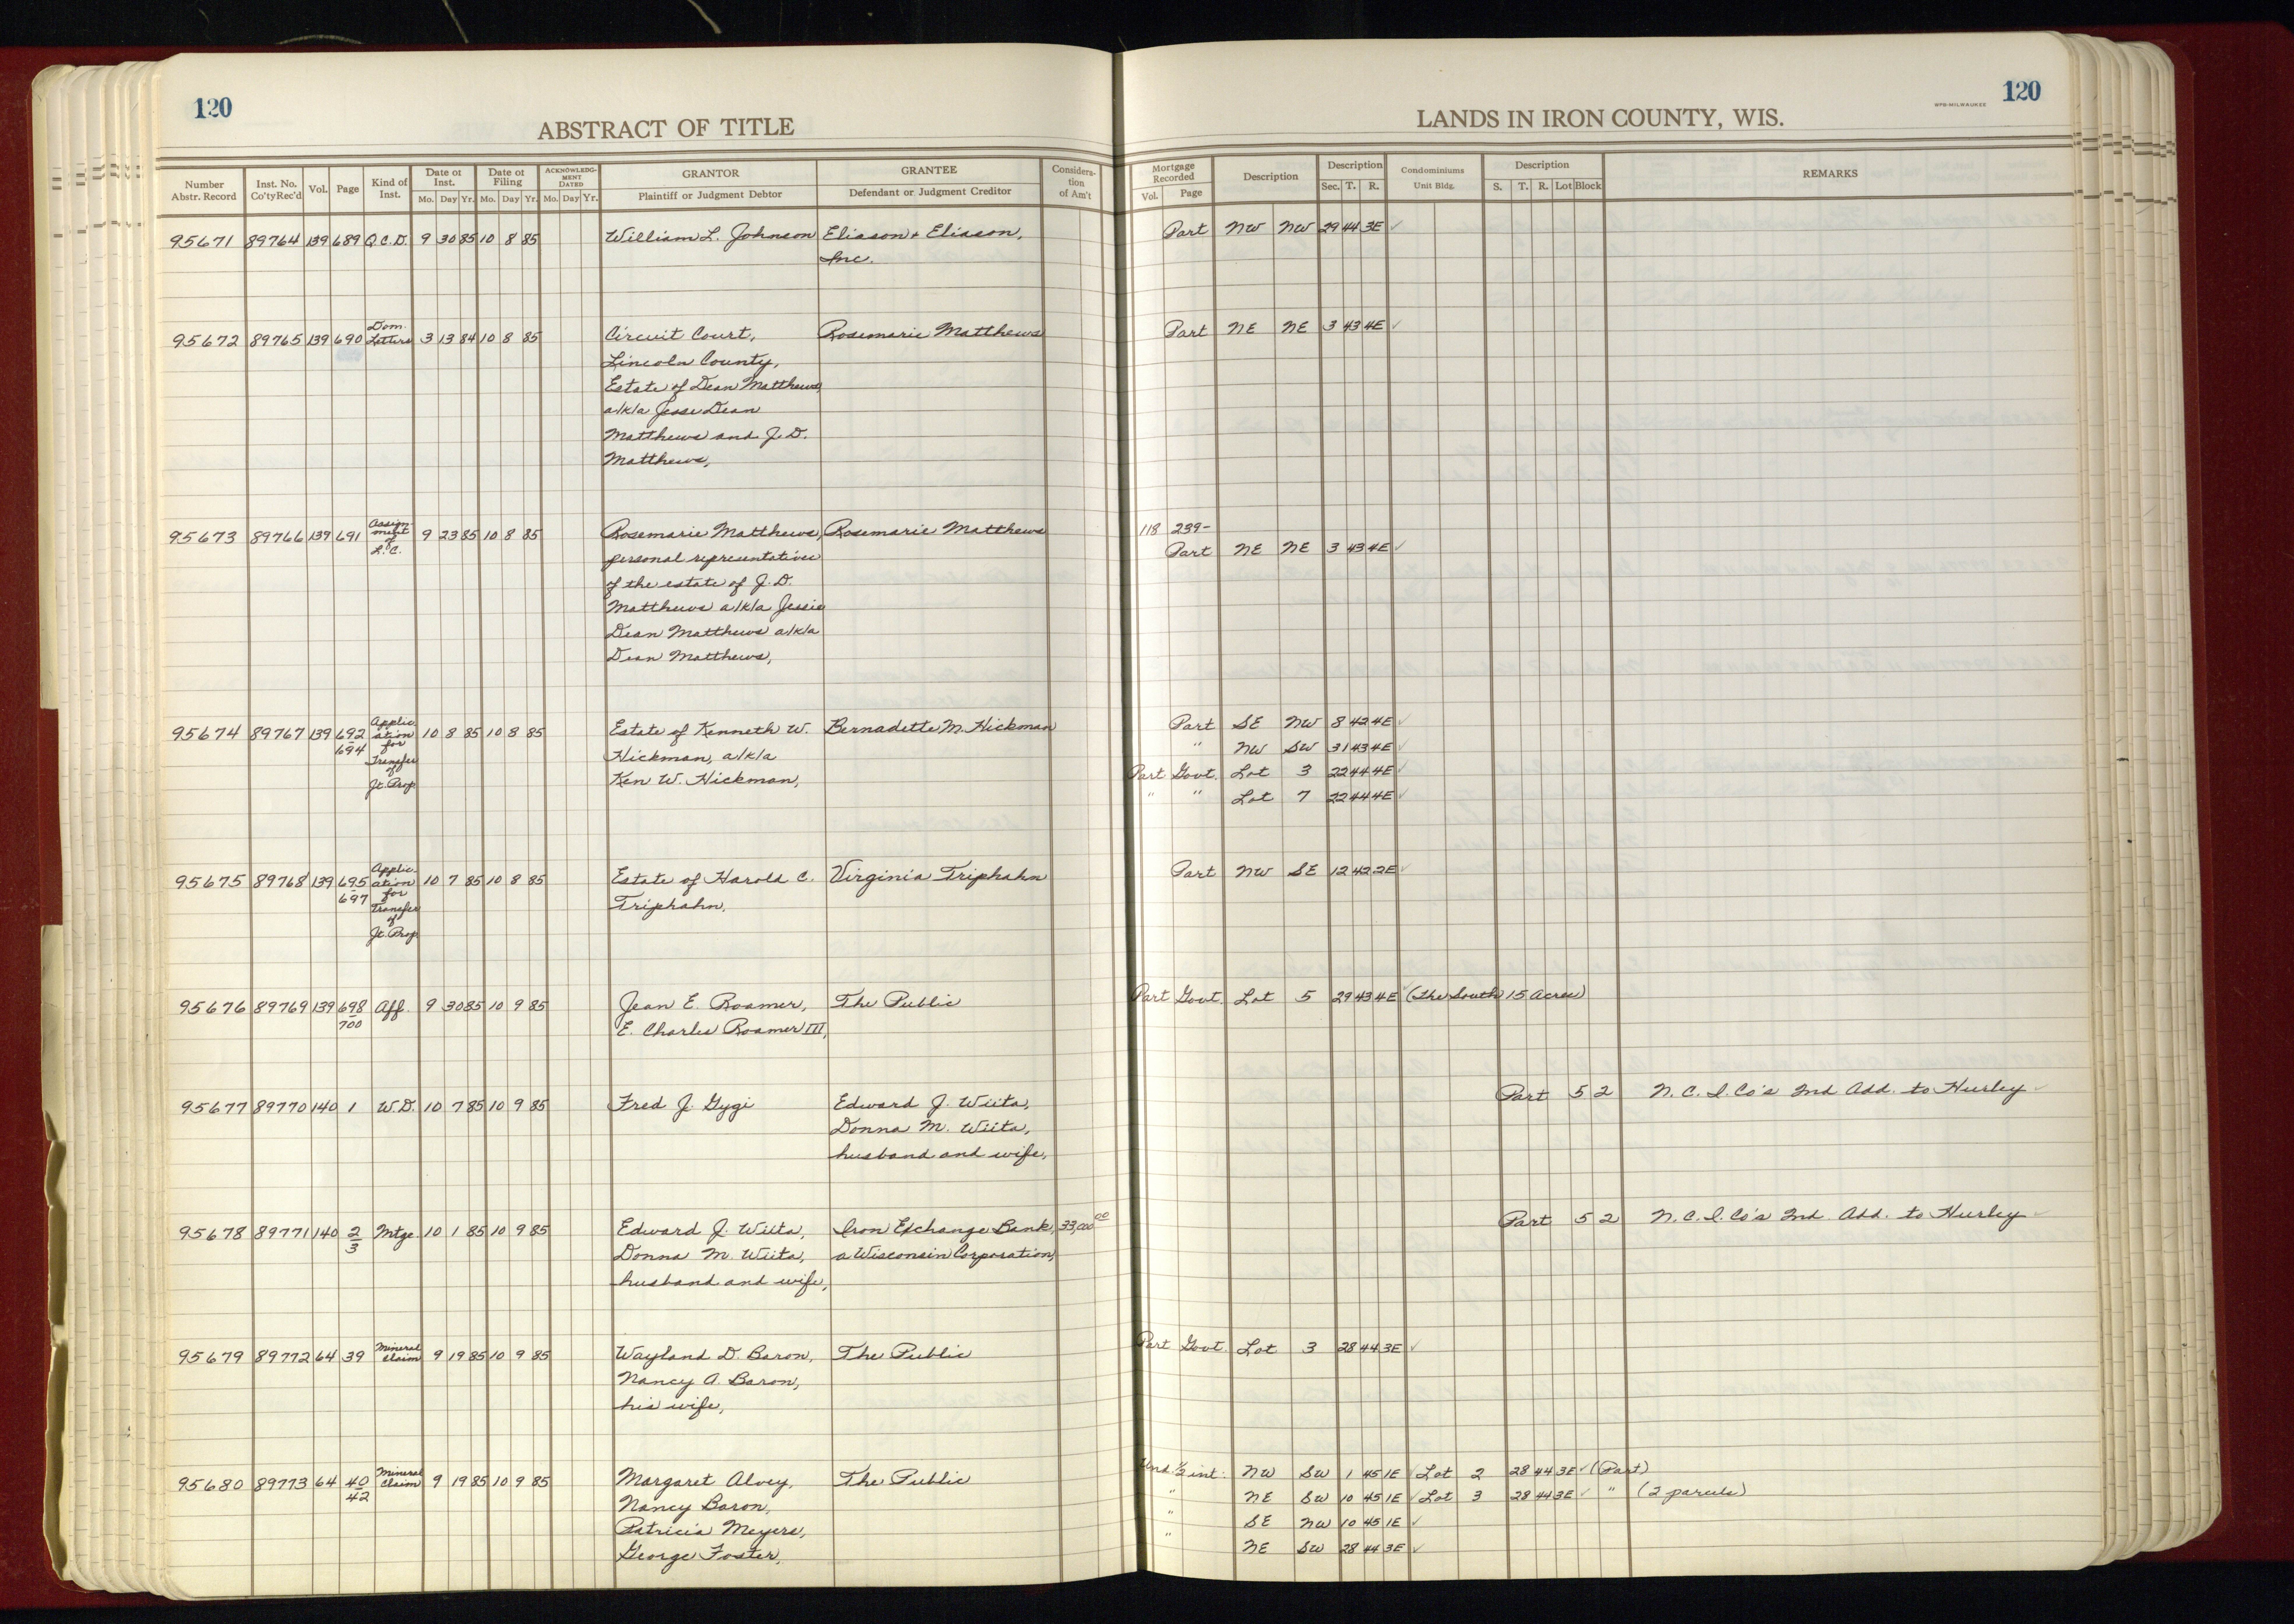 120
ABSTRACT OF TITLE
Number Abstr. Record | Inst. No. Co'ty Rec'd | Vol. | Page | Kind of Inst. | Date of Inst. Mo. Day Yr. | Date of Filing Mo. Day Yr. | ACKNOWLEDGMENT DATED Mo. Day Yr. | GRANTOR Plaintiff or Judgment Debtor | GRANTEE Defendant or Judgment Creditor | Consideration of Am't
95671 89764 139 689 Q.C.D. 9 30 85 10 8 85 William L. Johnson Eliason + Eliason,
Inc.
Dom.
95672 89765 139 690 Letters 3 13 84 10 8 85 Circuit Court, Rosemarie Matthews
Lincoln County,
Estate of Dean Matthews,
a/k/a Jesse Dean
Matthews and J.D.
Matthews,
Assign-
95673 89766 139 691 ment 9 23 85 10 8 85 Rosemarie Matthews, Rosemarie Matthews
of
L.C. personal representative
of the estate of J.D.
Matthews a/k/a Jessie
Dean Matthews a/k/a
Dean Matthews,
Applic-
95674 89767 139 692 ation 10 8 85 10 8 85 Estate of Kenneth W. Bernadette M. Hickman
694 for
Transfer Hickman, a/k/a
of
Jt. Prop. Ken W. Hickman,
Applic-
95675 89768 139 695 ation 10 7 85 10 8 85 Estate of Harold C. Virginia Triphahn
697 for
Transfer Triphahn,
of
Jt. Prop.
95676 89769 139 698 Aff. 9 30 85 10 9 85 Jean E. Roamer, The Public
700 E. Charles Roamer III,
95677 89770 140 1 W.D. 10 7 85 10 9 85 Fred J. Gygi Edward J. Wiita,
Donna M. Wiita,
husband and wife,
95678 89771 140 2 Mtge. 10 1 85 10 9 85 Edward J. Wiita, Iron Exchange Bank, 33,000 00
3 Donna M. Wiita, a Wisconsin Corporation,
husband and wife,
Mineral
95679 89772 64 39 Claim 9 19 85 10 9 85 Wayland D. Baron, The Public
Nancy A. Baron,
his wife,
Mineral
95680 89773 64 40 Claim 9 19 85 10 9 85 Margaret Alvey, The Public
42 Nancy Baron,
Patricia Meyers,
George Foster,
120
WPB-MILWAUKEE
LANDS IN IRON COUNTY, WIS.
Mortgage Recorded Vol. Page | Description | Description Sec. T. R. | Condominiums Unit Bldg. | Description S. T. R. Lot Block | REMARKS
Part NW NW 29 44 3E ✓
Part NE NE 3 43 4E ✓
118 239-
Part NE NE 3 43 4E ✓
Part SE NW 8 42 4E ✓
" NW SW 31 43 4E ✓
Part Govt. Lot 3 22 44 4E ✓
" " Lot 7 22 44 4E ✓
Part NW SE 12 42 2E ✓
Part Govt. Lot 5 29 43 4E ✓ (the South 15 Acres)
Part 5 2 N.C.I. Co's 2nd Add. to Hurley ✓
Part 5 2 N.C.I. Co's 2nd Add. to Hurley ✓
Part Govt. Lot 3 28 44 3E ✓
Und. 1/2 int. NW SW 1 45 1E ✓ Lot 2 28 44 3E ✓ (Part)
" NE SW 10 45 1E ✓ Lot 3 28 44 3E ✓ " (2 parcels)
" SE NW 10 45 1E ✓
" NE SW 28 44 3E ✓